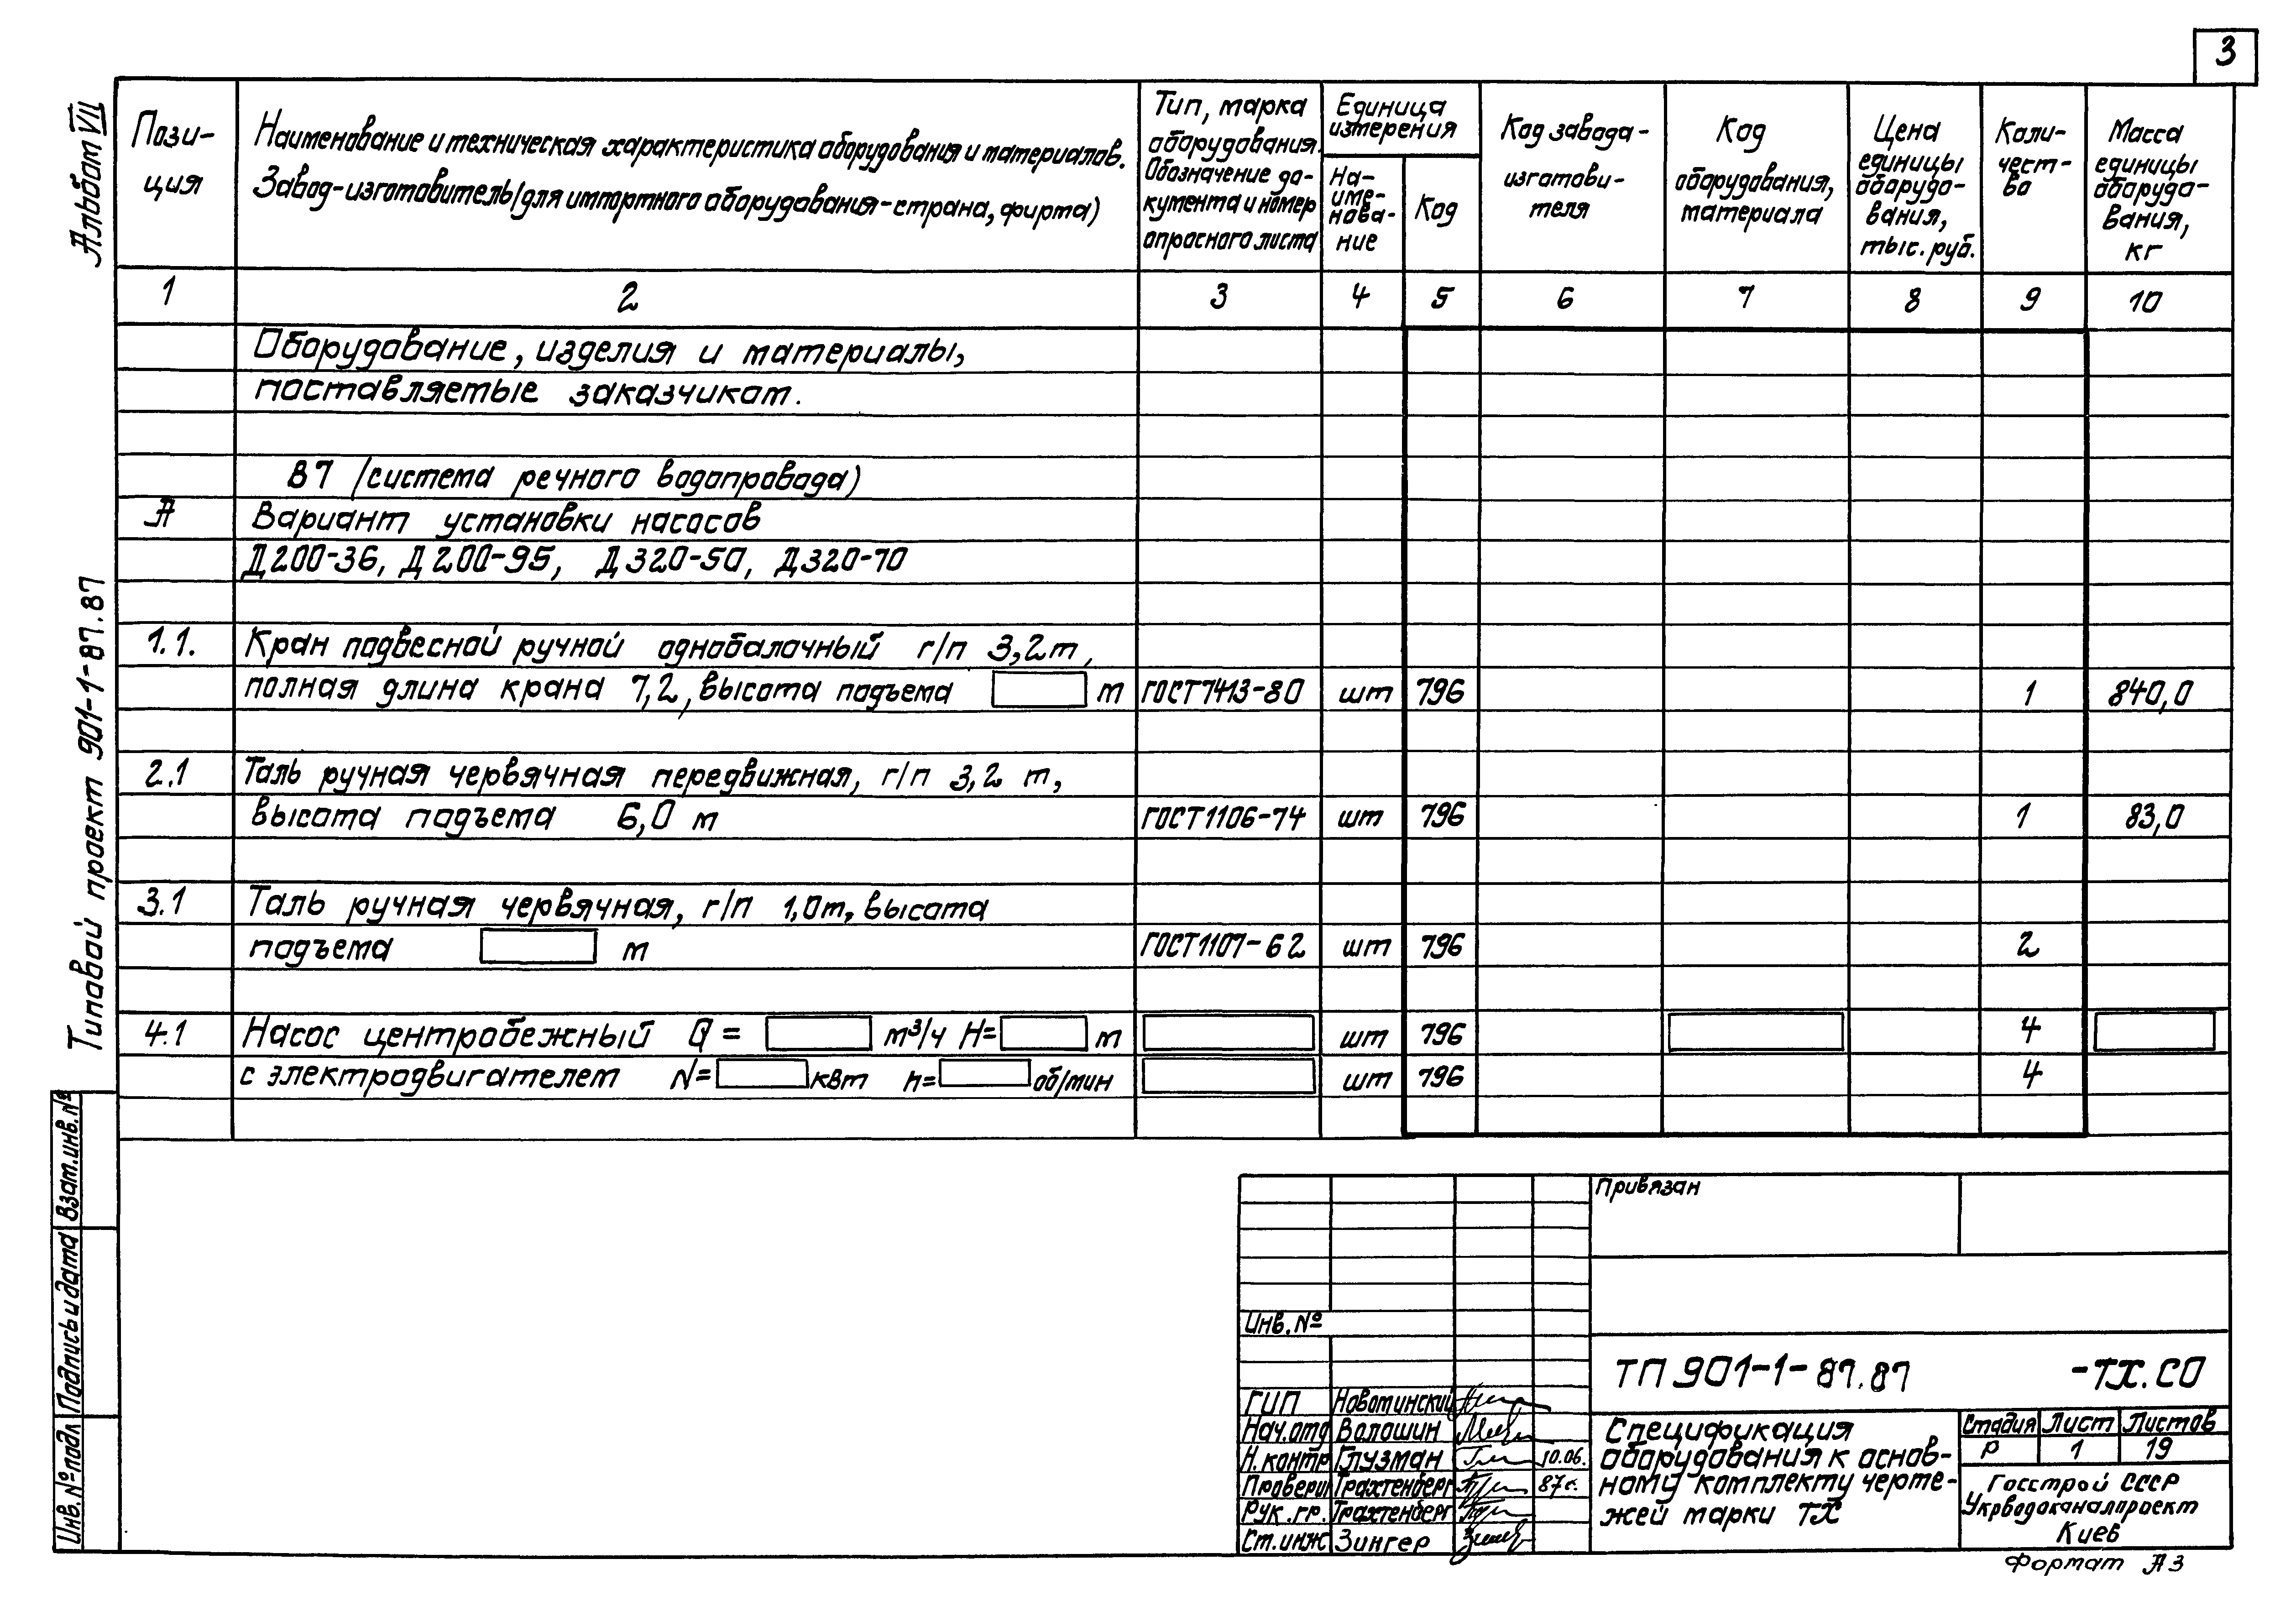 3
Альбом VII
Типовой проект 901-1-87.87
Пози-
ция
Наименование и техническая характеристика оборудования и материалов.
Завод-изготовитель (для импортного оборудования-страна, фирма)
Тип, марка
оборудования.
Обозначение до-
кумента и номер
опросного листа
Единица
измерения
На-
име-
нова-
ние
Код
Код завода-
изготови-
теля
Код
оборудования,
материала
Цена
единицы
оборудо-
вания,
тыс. руб.
Коли-
чест-
во
Масса
единицы
оборудо-
вания,
кг
1 2 3 4 5 6 7 8 9 10
Оборудование, изделия и материалы,
поставляемые заказчиком.
В7 (система речного водопровода)
А Вариант установки насосов
Д200-36, Д200-95, Д320-50, Д320-70
1.1. Кран подвесной ручной однобалочный г/п 3,2т,
полная длина крана 7,2, высота подъема м ГОСТ7413-80 шт 796 1 840,0
2.1 Таль ручная червячная передвижная, г/п 3,2 т,
высота подъема 6,0 м ГОСТ1106-74 шт 796 1 83,0
3.1 Таль ручная червячная, г/п 1,0т, высота
подъема м ГОСТ1107-62 шт 796 2
4.1 Насос центробежный Q = м³/ч H= м шт 796 4
с электродвигателем N= квт n= об/мин шт 796 4
Взам.инв.№
Подпись и дата
Инв.№ подл
Привязан
Инв.№
ТП 901-1-87.87 -ТХ.СО
ГИП Новоминский
Нач.отд Волошин
Н.контр Глузман 10.06.
Проверил Трахтенберг 87г.
Рук.гр. Трахтенберг
Ст.инж Зингер
Спецификация
оборудования к основ-
ному комплекту черте-
жей марки ТХ
Стадия Лист Листов
Р 1 19
Госстрой СССР
Укрводоканалпроект
Киев
Формат А3